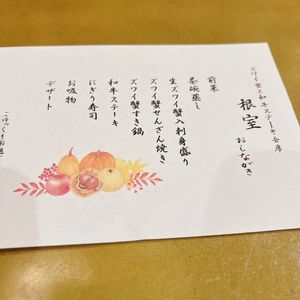 ズワイ蟹と和牛ステーキ会席
根室
おしながき
前菜
茶碗蒸し
生ズワイ蟹入刺身盛り
ズワイ蟹せんざん焼き
ズワイ蟹すき鍋
和牛ステーキ
にぎり寿司
お吸物
デザート
ごゆっくりお過ご